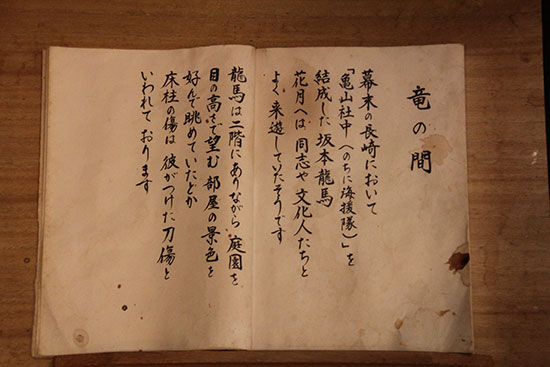 竜の間
幕末の長崎において
「亀山社中(のちに海援隊)」を
結成した坂本龍馬
花月へは同志や文化人たちと
よく来遊していたそうです
龍馬は二階にありながら庭園を
目の高さで望む部屋の景色を
好んで眺めていたとか
床柱の傷は彼がつけた刀傷と
いわれております